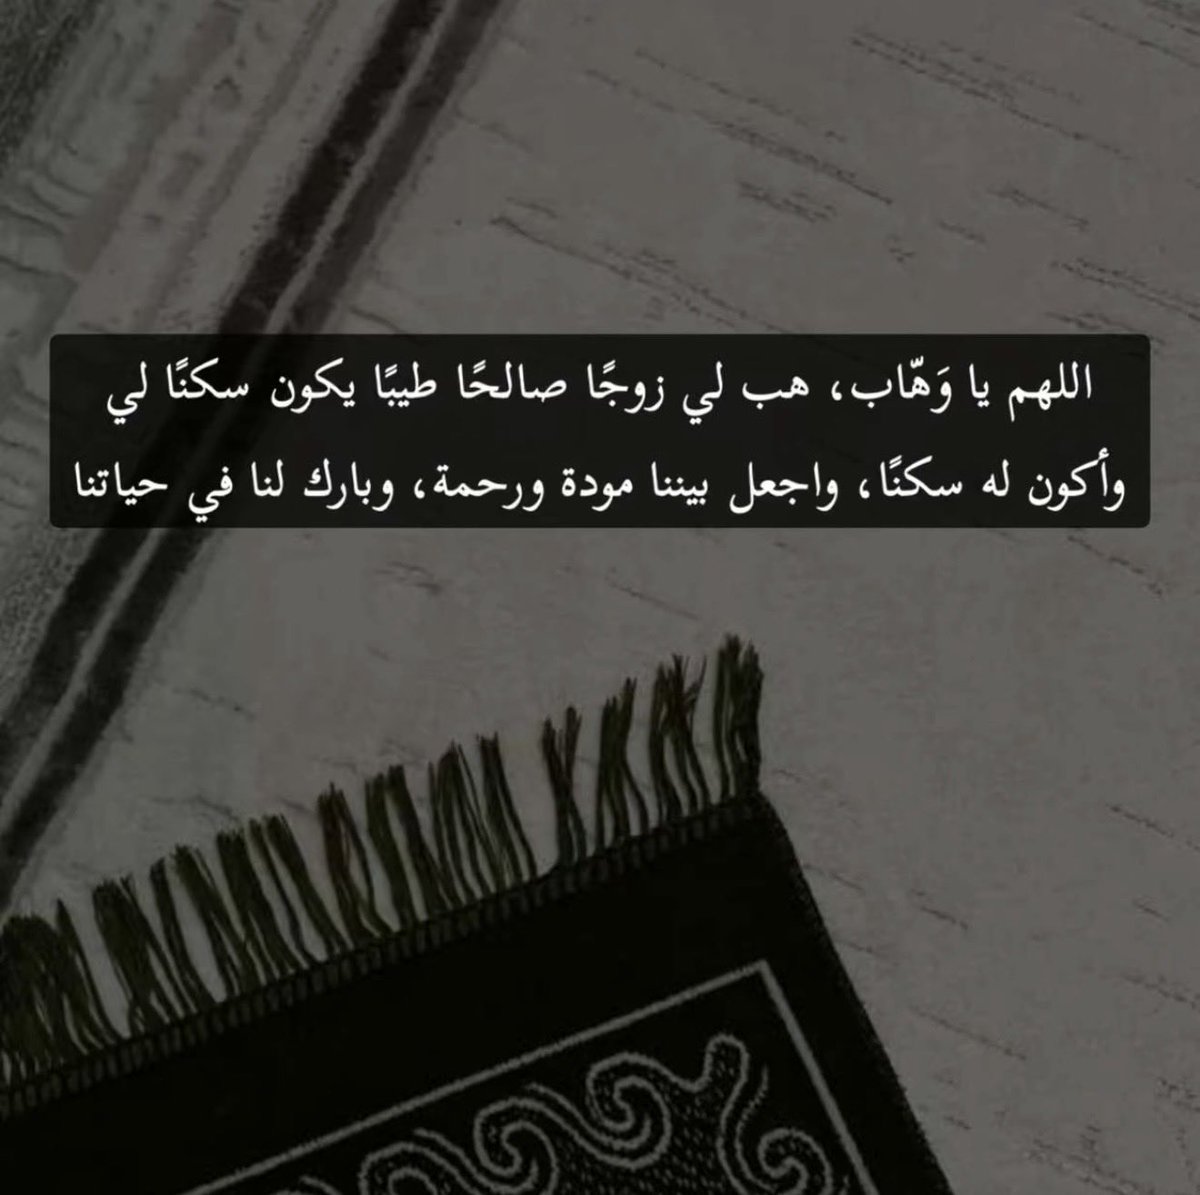 اللهم يا وَهّاب، هب لي زوجًا صالحًا طيبًا يكون سكنًا لي
وأكون له سكنًا، واجعل بيننا مودة ورحمة، وبارك لنا في حياتنا